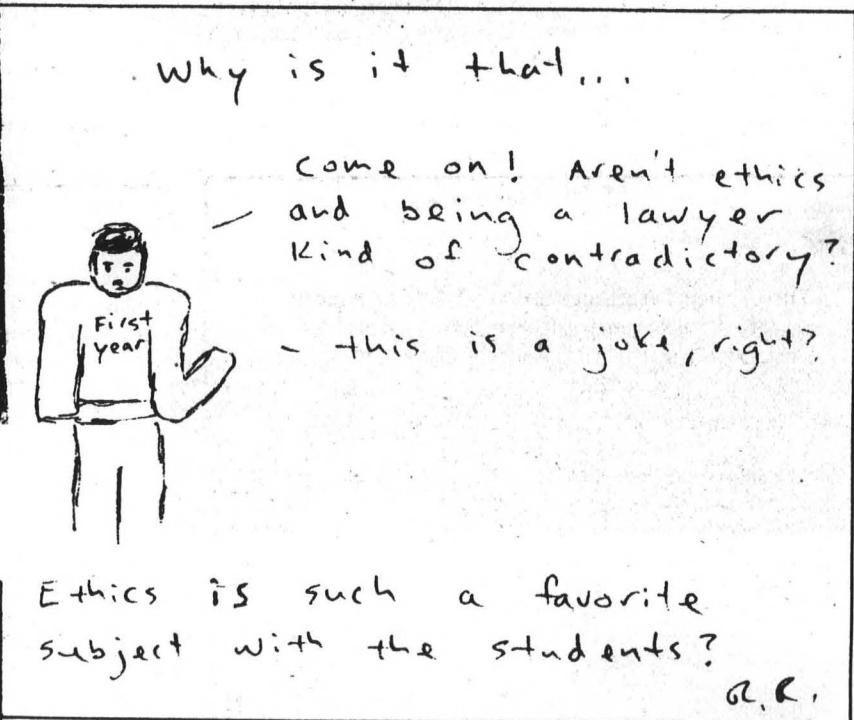 Why is it that...
Come on! Aren't ethics
and being a lawyer
kind of contradictory?
First
year
- this is a joke, right?
Ethics is such a favorite
subject with the students?
R.R.